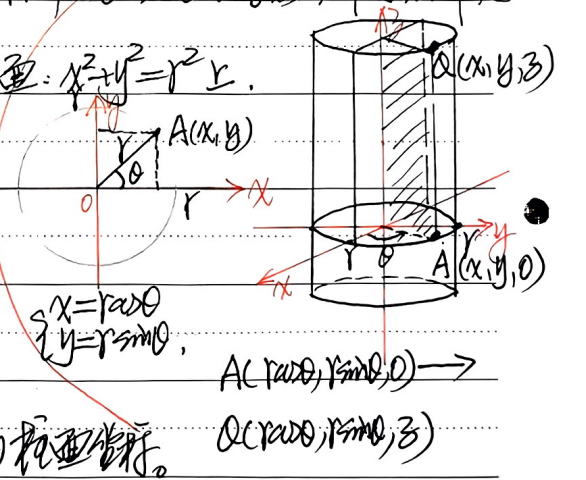 面: x²+y²=r² 上.
y
A(x,y)
r
θ
O
r
x
{x=rcosθ
y=rsinθ,
z
Q(x,y,z)
r
θ
r
y
A(x,y,0)
x
A(rcosθ,rsinθ,0)→
Q(rcosθ,rsinθ,z)
)柱面坐标。